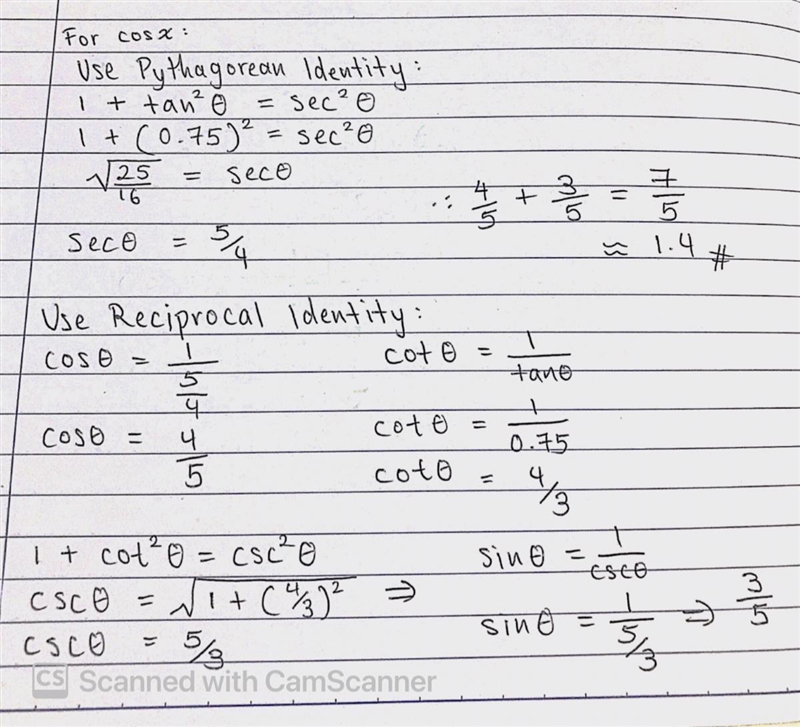 For cosx:
Use Pythagorean Identity:
1 + tan²θ = sec²θ
1 + (0.75)² = sec²θ
√25/16 = secθ
secθ = 5/4
∴ 4/5 + 3/5 = 7/5
≈ 1.4 #
Use Reciprocal Identity:
cosθ = 1/(5/4)
cosθ = 4/5
cotθ = 1/tanθ
cotθ = 1/0.75
cotθ = 4/3
1 + cot²θ = cscθ²θ
cscθ = √1 + (4/3)² ⇒
cscθ = 5/3
sinθ = 1/cscθ
sinθ = 1/(5/3) ⇒ 3/5
CS Scanned with CamScanner